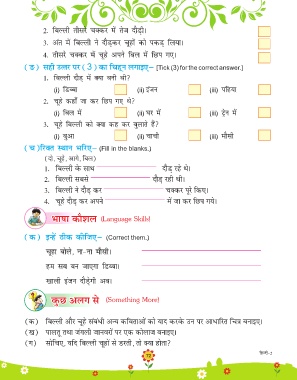 2. बिल्ली तीसरे चक्कर में तेज दौड़ी।
3. अंत में बिल्ली ने दौड़कर चूहों को पकड़ लिया।
4. तीसरे चक्कर में चूहे अपने बिल में छिप गए।
(ङ) सही उत्तर पर (3) का चिह्न लगाइए– [Tick (3) for the correct answer.]
1. बिल्ली दौड़ में क्या बनी थी?
(i) डिब्बा (ii) इंजन (iii) पहिया
2. चूहे कहाँ जा कर छिप गए थे?
(i) बिल में (ii) घर में (iii) ट्रेन में
3. चूहे बिल्ली को क्या कह कर बुलाते हैं?
(i) बुआ (ii) चाची (iii) मौसी
(च) रिक्त स्थान भरिए– (Fill in the blanks.)
(दो, चूहे, आगे, बिल)
1. बिल्ली के साथ दौड़ रहे थे।
2. बिल्ली सबसे दौड़ रही थी।
3. बिल्ली ने दौड़ कर चक्कर पूरे किए।
4. चूहे दौड़ कर अपने में जा कर छिप गये।
भाषा कौशल (Language Skills)
(क) इन्हें ठीक कीजिए– (Correct them.)
चूहा बोले, ना-ना मौसी।
हम सब बन जाएगा डिब्बा।
खाली इंजन दौड़ेगी अब।
कुछ अलग से (Something More)
(क) बिल्ली और चूहे संबंधी अन्य कविताओं को याद करके उन पर आधारित चित्र बनाइए।
(ख) पालतू तथा जंगली जानवरों पर एक कोलाज बनाइए।
(ग) सोचिए, यदि बिल्ली चूहों से डरती, तो क्या होता?
72
हिन्दी-2